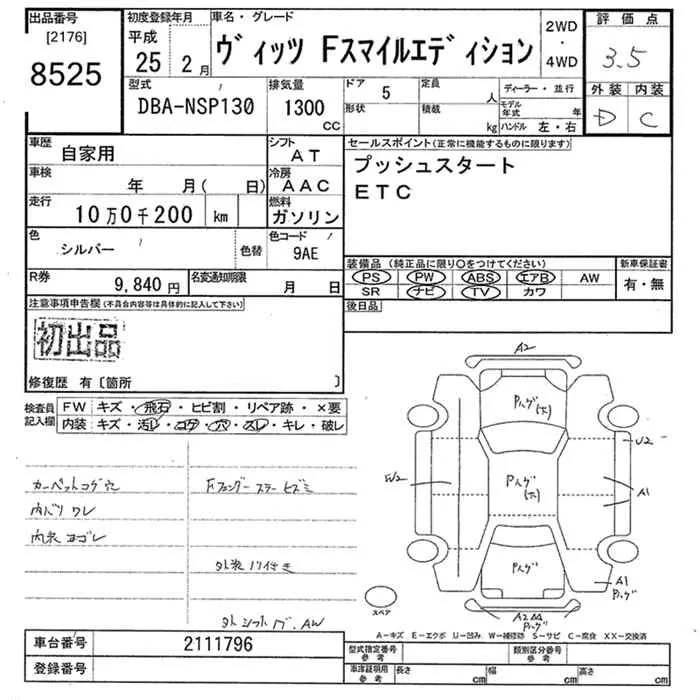 出品番号
[2176]
8525
初度登録年月
平成
25 2月
車名・グレード
ヴィッツ Fスマイルエディション
2WD
・
4WD
評価点
3.5
外装 内装
D C
型式
DBA-NSP130
排気量
1300
CC
ドア 5
形状
定員 人
積載 kg
ディーラー・並行
モデル年式 年
ハンドル 左・右
車歴 自家用
シフト AT
車検 年 月( 日)
冷房 AAC
走行 10万0千200 km
燃料 ガソリン
色 シルバー 色替
色コード 9AE
R券 9,840円
名変通知期限 月 日
セールスポイント(正常に機能するものに限ります)
プッシュスタート
ETC
装備品 (純正品に限り○をつけてください)
PS PW ABS エアB AW
SR ナビ TV カワ
新車保証書
有・無
後日品
注意事項申告欄(不具合内容等は具体的に記入して下さい)
初出品
修復歴 有〔箇所 〕
検査員記入欄
FW キズ・飛石・ヒビ割・リペア跡・×要
内装 キズ・汚レ・コゲ・穴・スレ・キレ・破レ
カーペットコゲ穴
内バリ ワレ
内装 ヨゴレ
Fフェンダーステー ヒズミ
外装 ノリ付き
A2
Pハゲ(大)
U2
W2
Pハゲ(大)
A1
Pハゲ
A1
Pハゲ
A2
Pハゲ
スペア
A-キズ E-エクボ U-凹み W-補修跡 S-サビ C-腐食 XX-交換済
車台番号 2111796
登録番号
型式指定番号 参考
類別区分番号 参考
車庫証明用 参考
長さ cm
幅 cm
高さ cm